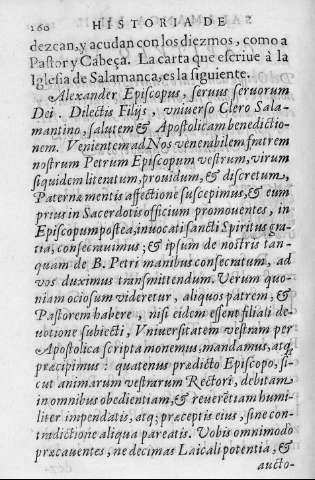 260 HISTORIA DE
dezcan, y acudan con los diezmos, como a
Pastor y Cabeça. La carta que escriue à la
Iglesia de Salamanca, es la siguiente.
Alexander Episcopus, seruus seruorum
Dei. Dilectis Filijs, vniuerso Clero Sala-
mantino, salutem & Apostolicam benedictio-
nem. Venientem ad Nos venerabilem fratrem
nostrum Petrum Episcopum vestrum, virum
siquidem literatum, prouidum, & discretum,
Paternæ mentis affectione suscepimus, & eum
prius in Sacerdotis officium promouentes, in
Episcopum postea, inuocati sancti Spiritus gra
tia, consecrauimus; & ipsum de nostris tan-
quam de B. Petri manibus consecratum, ad
vos duximus transmittendum. Verum quo-
niam ociosum videretur, aliquos patrem, &
Pastorem habere, nisi eidem essent filiali de-
uotione subiecti, Vniuersitatem vestram per
Apostolica scripta monemus, mandamus, atq;
præcipimus: quatenus prædicto Episcopo, si-
cut animarum vestrarum Rectori, debitam
in omnibus obedientiam, & reuerētiam humi-
liter impendatis, atq; præceptis eius, sine con-
tradictione aliqua pareatis. Vobis omnimodo
præcauentes, ne decimas Laicali potentia, &
aucto-